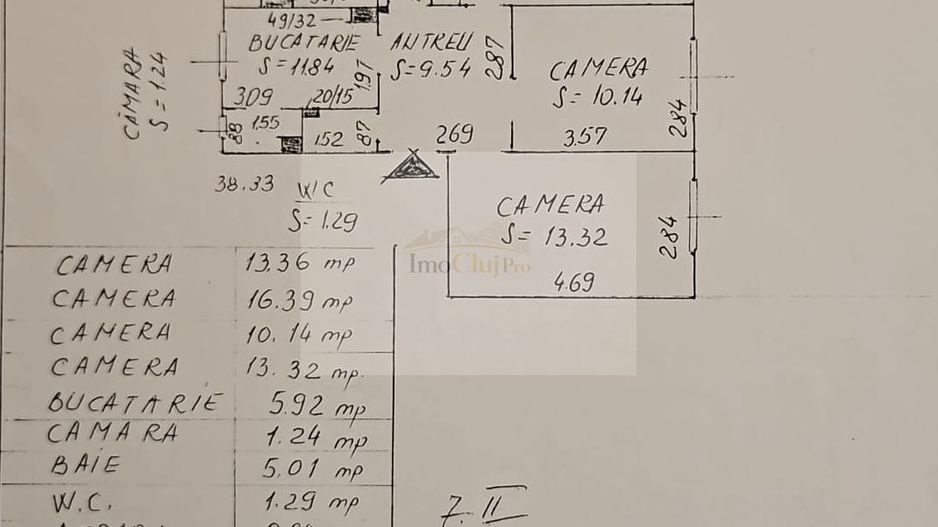 49/32
BUCATARIE
S=11.84
ANTREU
S=9.54
287
197
CAMERA
S=10.14
CĂMARA
S=1.24
309
20/15
88
1,55
152
87
269
3.57
284
38.33
W/C
S=1.29
CAMERA
S= 13.32
284
ImoClujPro
4.69
CAMERA 13.36 mp
CAMERA 16.39 mp
CAMERA 10.14 mp
CAMERA 13.32 mp.
BUCATARIE 5.92 mp
CAMARA 1.24 mp
BAIE 5.01 mp
W.C. 1.29 mp
7. II